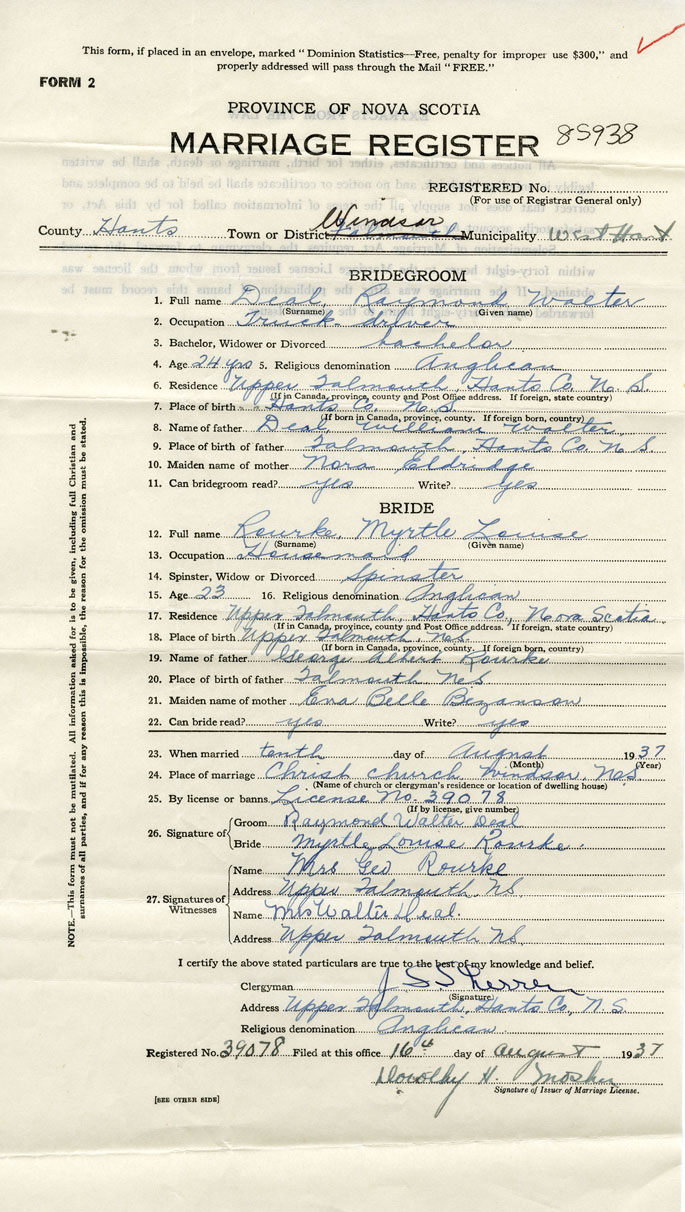 This form, if placed in an envelope, marked " Dominion Statistics—Free, penalty for improper use $300," and
properly addressed will pass through the Mail " FREE."
FORM 2
PROVINCE OF NOVA SCOTIA
MARRIAGE REGISTER 85938
REGISTERED No.
(For use of Registrar General only)
County Hants Town or District Falmouth Windsor Municipality West Hant
BRIDEGROOM
1. Full name Deal, Raymond Walter
(Surname) (Given name)
2. Occupation Truck driver
3. Bachelor, Widower or Divorced bachelor
4. Age 24 yrs 5. Religious denomination Anglican
6. Residence Upper Falmouth, Hants Co. N. S.
(If in Canada, province, county and Post Office address. If foreign, state country)
7. Place of birth Hants Co. N. S.
(If born in Canada, province, county. If foreign born, country)
8. Name of father Deal, William Walter
9. Place of birth of father Falmouth, Hants Co N S
10. Maiden name of mother Nora Eldridge
11. Can bridegroom read? yes Write? yes
BRIDE
12. Full name Rourke, Myrtle Louise
(Surname) (Given name)
13. Occupation Housemaid
14. Spinster, Widow or Divorced Spinster
15. Age 23 16. Religious denomination Anglican
17. Residence Upper Falmouth, Hants Co., Nova Scotia
(If in Canada, province, county and Post Office address. If foreign, state country)
18. Place of birth Upper Falmouth, N.S.
(If born in Canada, province, county. If foreign born, country)
19. Name of father George Albert Rourke
20. Place of birth of father Falmouth N.S
21. Maiden name of mother Ena Belle Bezanson
22. Can bride read? yes Write? yes
23. When married tenth day of August 1937
(Month) (Year)
24. Place of marriage Christ church Windsor, N.S
(Name of church or clergyman's residence or location of dwelling house)
25. By license or banns License No. 39078
(If by license, give number)
26. Signature of Groom Raymond Walter Deal
Bride Myrtle Louise Rourke.
27. Signatures of Witnesses
Name Mrs Geo Rourke
Address Upper Falmouth, N.S.
Name Mrs Walter Deal.
Address Upper Falmouth N.S.
I certify the above stated particulars are true to the best of my knowledge and belief.
Clergyman J S S Herren
(Signature)
Address Upper Falmouth, Hants Co., N S
Religious denomination Anglican
Registered No. 39078 Filed at this office 16th day of August 1937
Dorothy H. Mosher
Signature of Issuer of Marriage License.
[SEE OTHER SIDE]
NOTE.—This form must not be mutilated. All information asked for is to be given, including full Christian and
surnames of all parties, and if for any reason this is impossible, the reason for the omission must be stated.